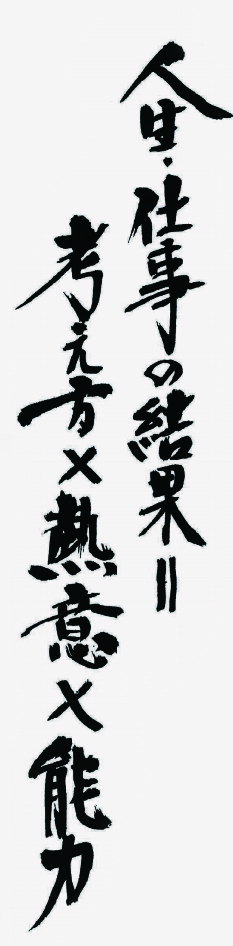 人生・仕事の結果＝
考え方×熱意×能力